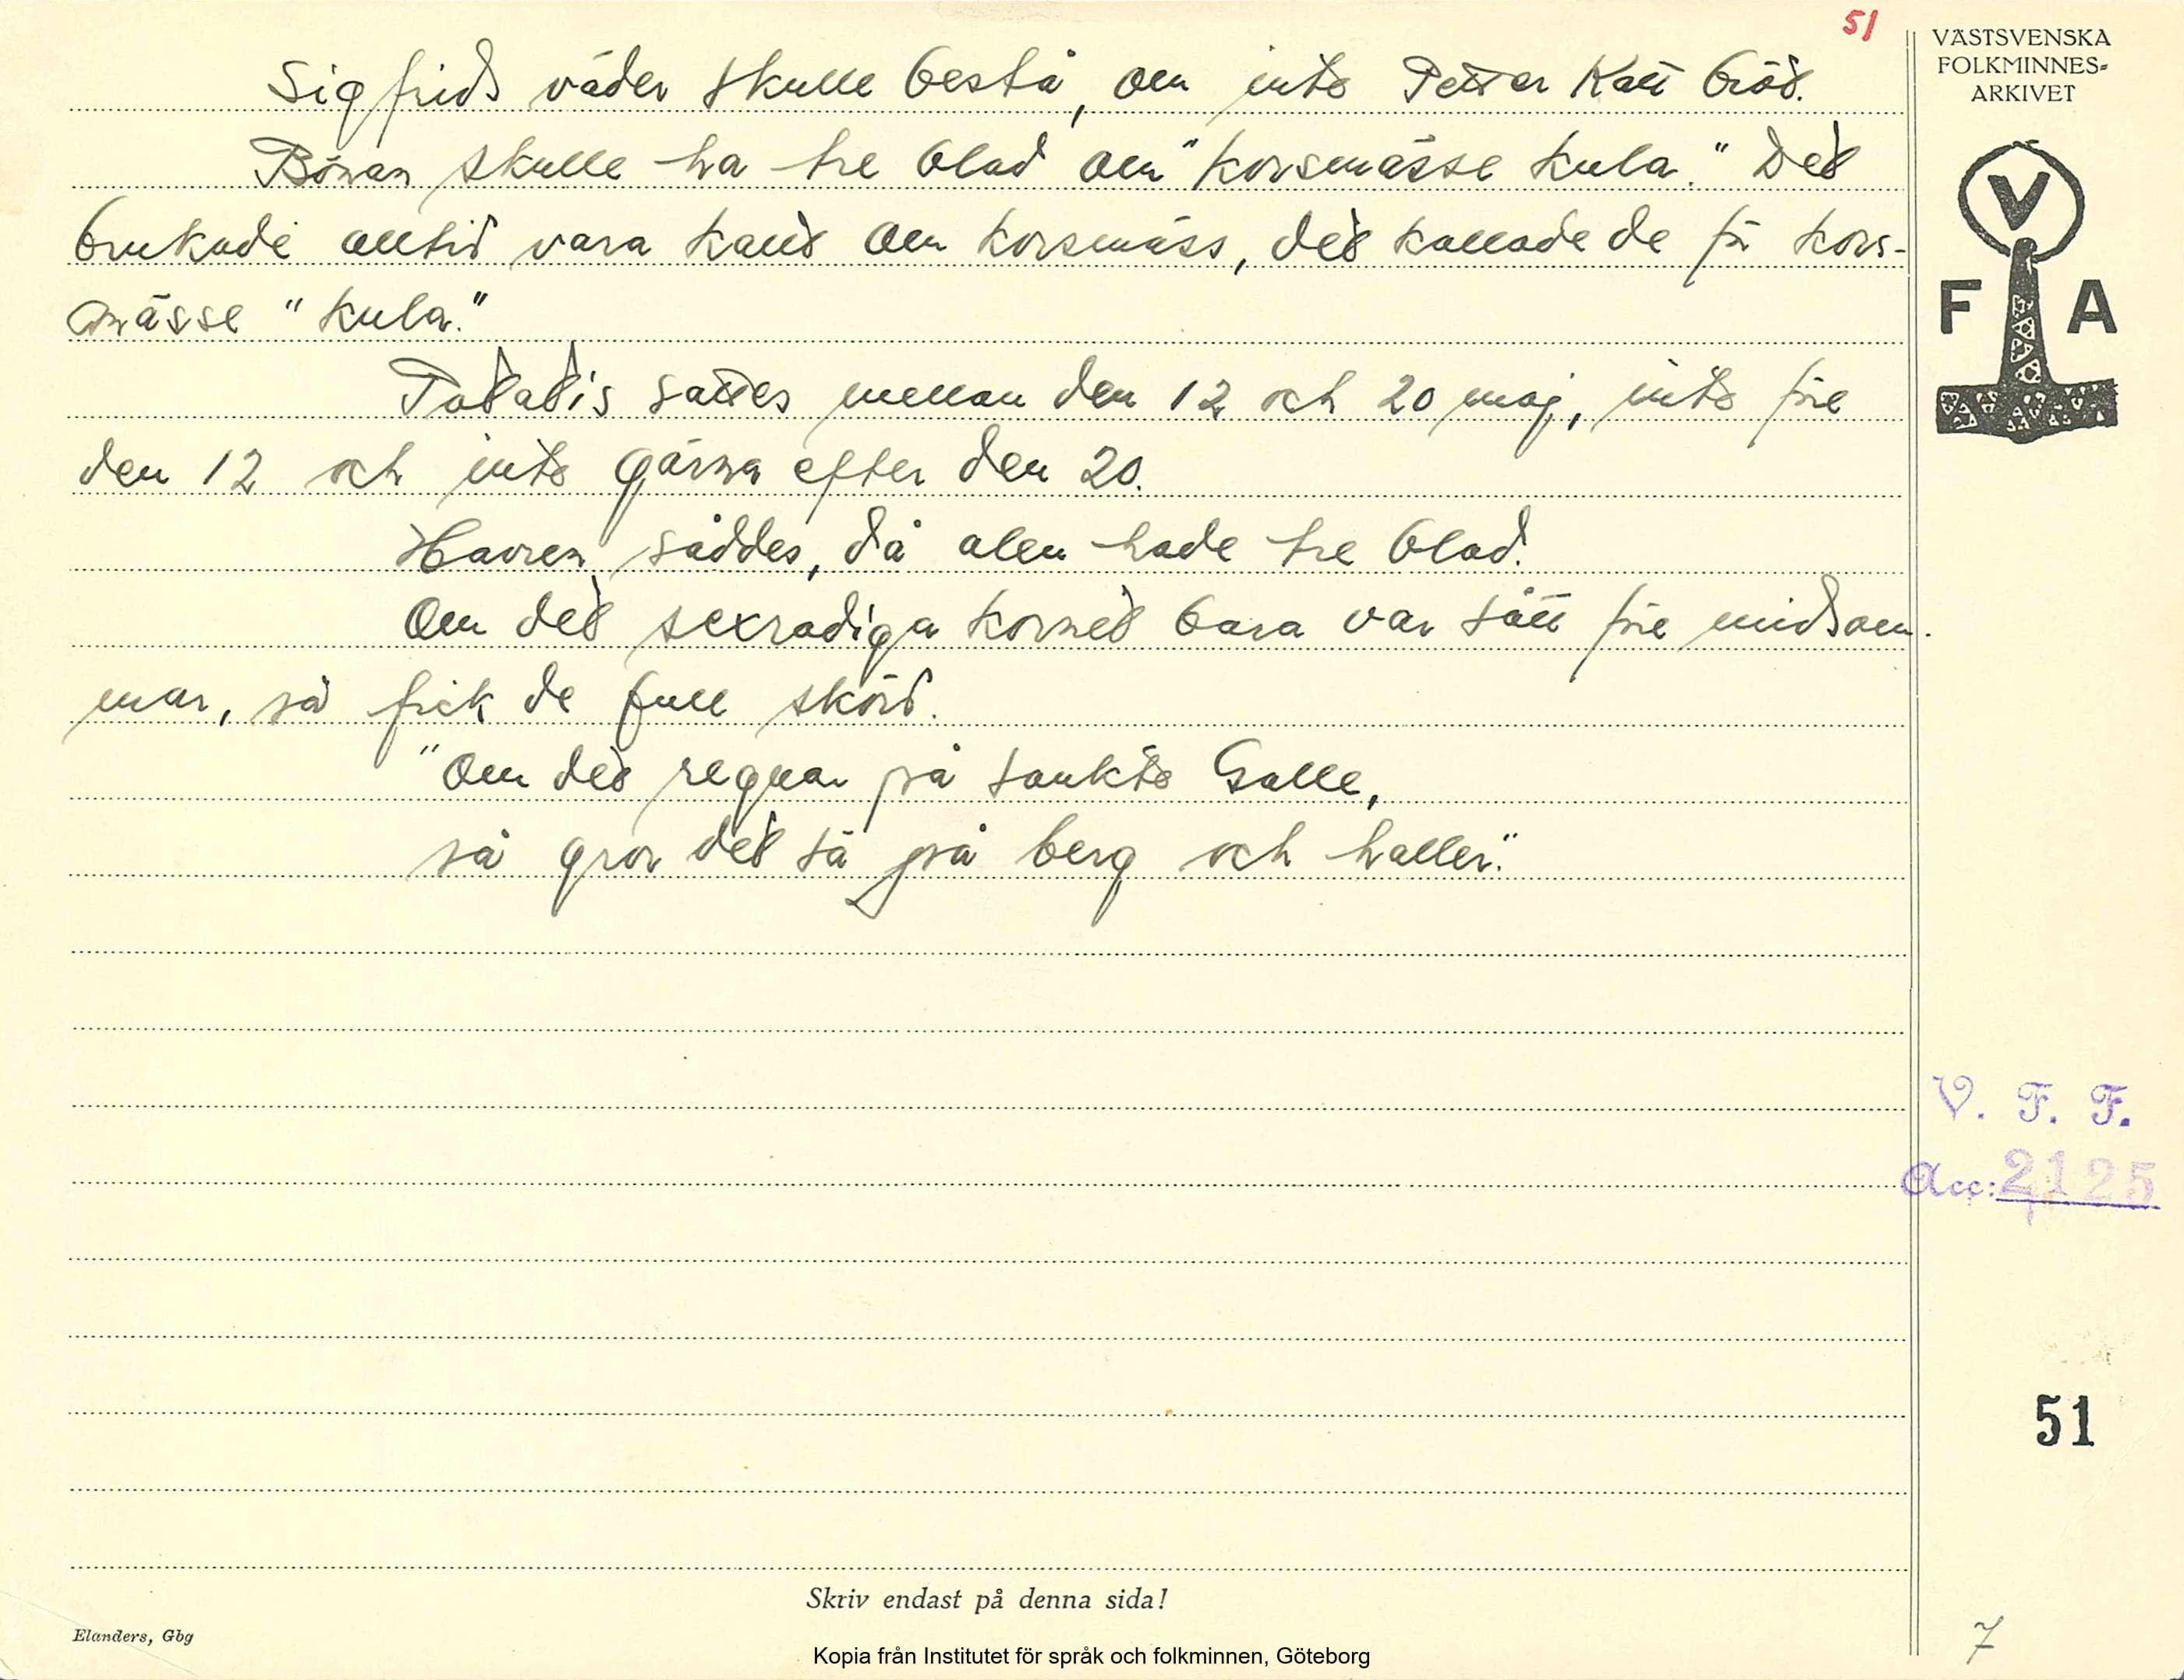 51
VÄSTSVENSKA
FOLKMINNES=
ARKIVET
Sigfrids väder skulle bestå, om inte Petter Katt bröt.
Bönan skulle ha tre blad om "korsmässe kula." Det
brukade alltid vara kallt om korsmäss, det kallade de för kors-
mässe "kula."
Potatis sattes mellan den 12 och 20 maj, inte före
den 12 och inte gärna efter den 20.
Havren såddes, då alen hade tre blad.
Om det sexradiga kornet bara var sått före midsom-
mar, så fick de full skörd.
"Om det regnar på sankte Galle,
så gror det så på berg och haller."
V
F A
V. F. F.
Acc: 2125
51
Skriv endast på denna sida!
Elanders, Gbg
7
Kopia från Institutet för språk och folkminnen, Göteborg